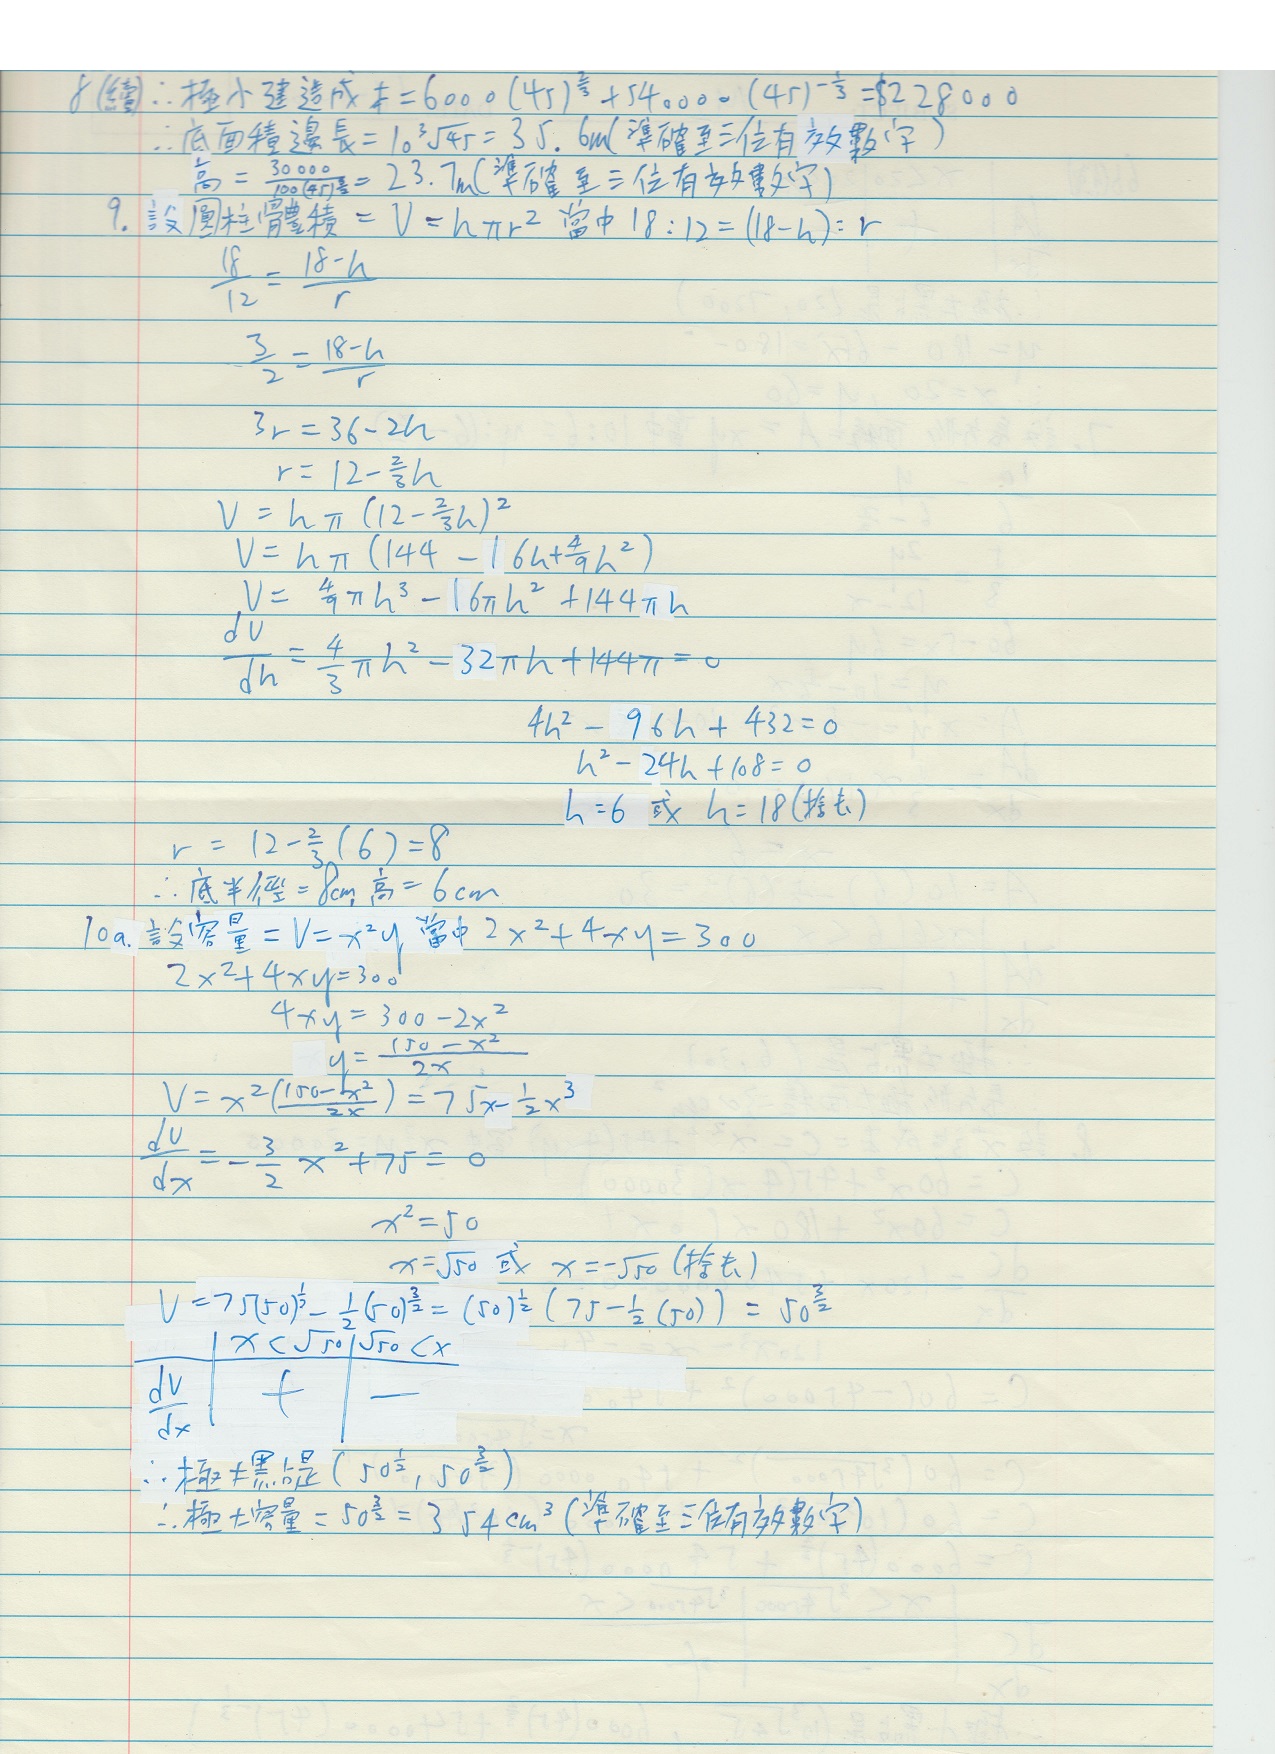 8(續)∴極小建造成本=6000(45)^(2/3)+540000(45)^(-1/3)=$228000
∴底面積邊長=10³√45=35.6m(準確至三位有效數字)
高=30000/100(45)^(2/3)=23.7m(準確至三位有效數字)
9. 設圓柱體積=V=hπr² 當中18:12=(18-h):r
18/12=(18-h)/r
3/2=(18-h)/r
3r=36-2h
r=12-2/3h
V=hπ(12-2/3h)²
V=hπ(144-16h+4/9h²)
V=4/9πh³-16πh²+144πh
dV/dh=4/3πh²-32πh+144π=0
4h²-96h+432=0
h²-24h+108=0
h=6 或 h=18(捨去)
r=12-2/3(6)=8
∴底半徑=8cm,高=6cm
10a. 設容量=V=x²y 當中2x²+4xy=300
2x²+4xy=300
4xy=300-2x²
y=(150-x²)/2x
V=x²((150-x²)/2x)=75x-1/2x³
dV/dx=-3/2x²+75=0
x²=50
x=√50 或 x=-√50(捨去)
V=75(50)^(1/2)-1/2(50)^(3/2)=(50)^(1/2)(75-1/2(50))=50^(3/2)
x<√50 | √50<x
dV/dx | + | -
∴極大點是(50^(1/2),50^(3/2))
∴極大容量=50^(3/2)=354cm³(準確至三位有效數字)